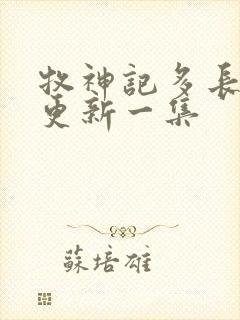 牧神記多長
更新一集
蘇培雄